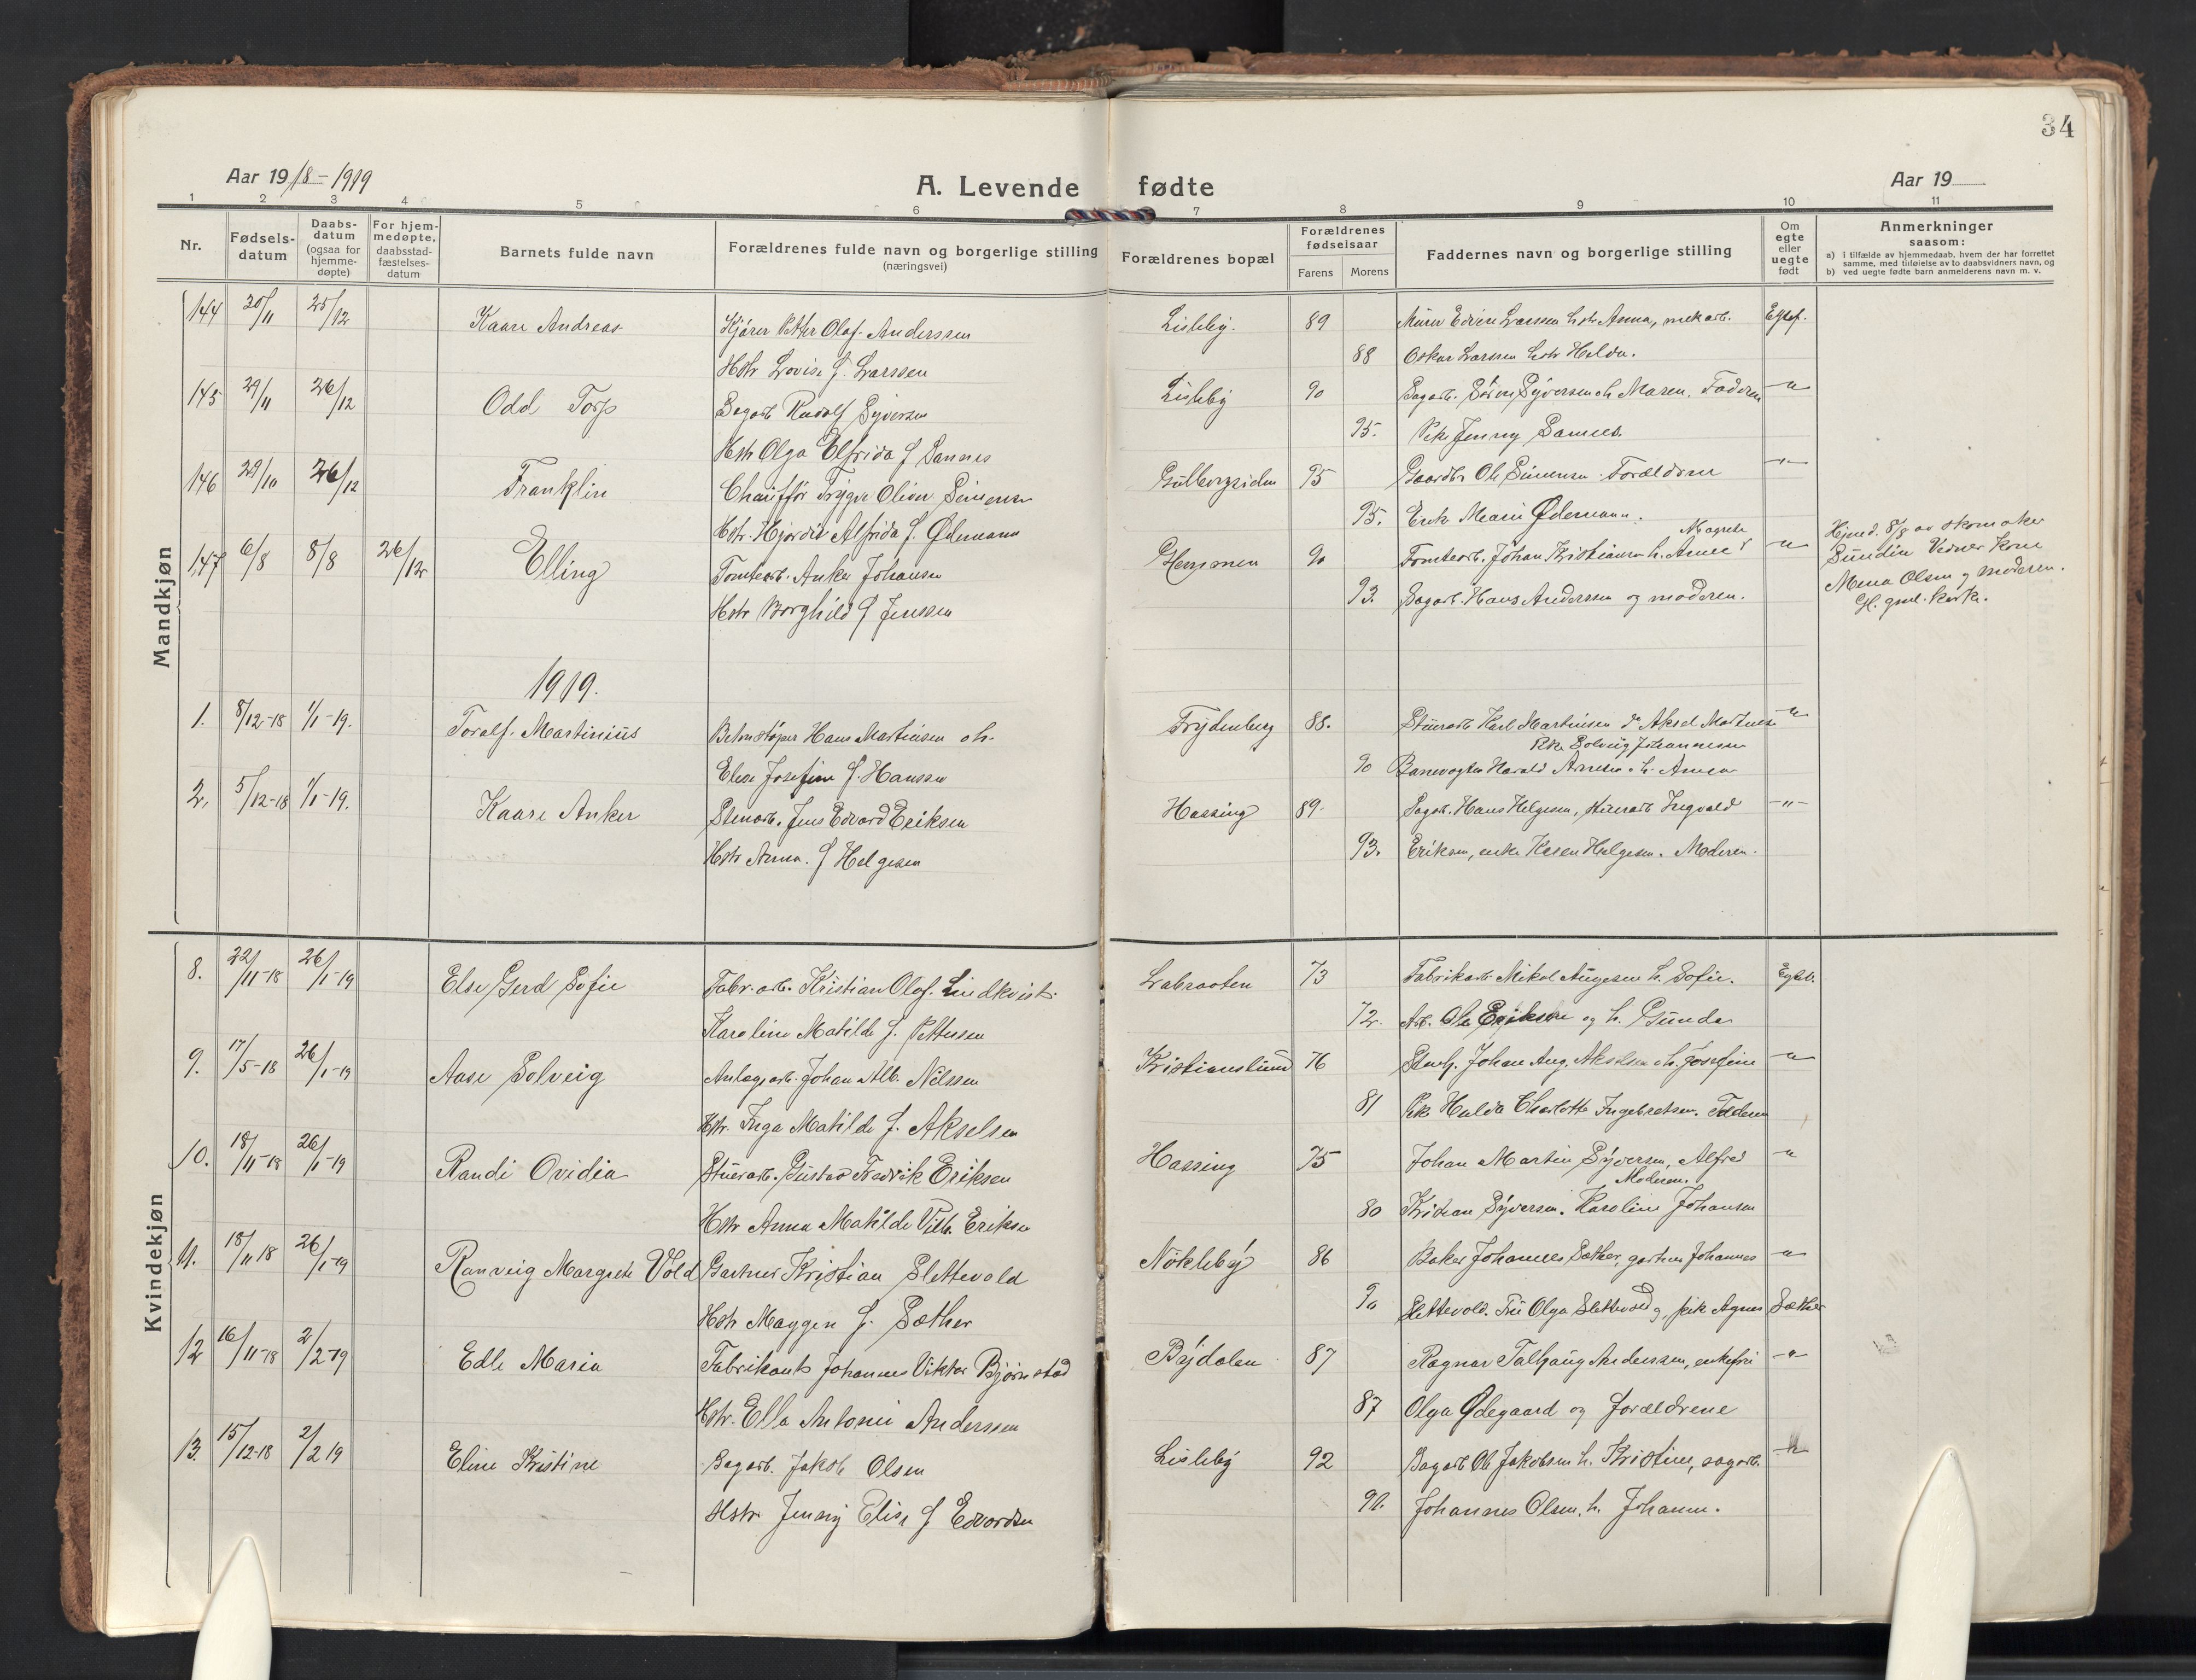 34
Aar 1918-1919
A. Levende fødte
Aar 19
1 2 3 4 5 6 7 8 9 10 11
Nr.
Fødsels-
datum
Daabs-
datum
(ogsaa for
hjemme-
døpte)
For hjem-
medøpte,
daabsstad-
fæstelses-
datum
Barnets fulde navn
Forældrenes fulde navn og borgerlige stilling
(næringsvei)
Forældrenes bopæl
Forældrenes
fødselsaar
Farens Morens
Faddernes navn og borgerlige stilling
Om
egte
eller
uegte
født
Anmerkninger
saasom:
a) I tilfælde av hjemmedaab, hvem der har forrettet
samme, med tilføielse av to daabsvidners navn, og
b) ved uegte fødte barn anmelderens navn m. v.
Mandkjøn
144 20/11 25/12 Kaare Andreas Kjører Petter Olaf Anderssen Lisleby. 89 Murer Larssen hstr Anna,
Hstr Lovise f. Larssen 88 Oskar Larssen hstr Hilda.
145 29/11 26/12 Odd Torp Sagarb. Rudolf Syversen Lisleby 90 Sagarb. Syversen h. Maren. Faderen -"-
Hstr Olga Elfrida f Sannes 95. Pike Jenny Sannes.
146 29/10 26/12 Franklin Chauffør Trygve Oliver Simensen 95 Gaardbr. Ole Simensen. Forældrene -"-
Hstr. Hjørdis Alfrida f. Ødemann 95. Enke Marie Ødemann.
147 6/8 8/8 26/12 Elling Tomtearb. Anker Johansen 90 Tomtearb. Johan Kristiansen h. Magrete -"-
Hstr Borghild f Jenssen 93. Sagarb. Hans Anderssen og moderen.
Hjemd. 8/8 av skomaker
Sundin
Olsen og moderen.
1919.
1. 8/12-18 1/1-19. Toralf Martinius Betonstøper Hans Martinsen oh. Frydenberg 88. Stuerarb. Karl Martinsen do Aksel Martinsen -"-
Pike Solveig Johannessen
Elise Josefine f. Hanssen 90 Banevogter Harald Arnesen h. Anna
2. 5/12-18 1/1-19. Kaare Anker Stenarb. Jens Edvard Eriksen Hassing 89. Sagarb. Hans Helgesen, Ingvald -"-
Hstr Anna. f Helgesen 93. Eriksen, enke Helgesen. Moderen.
Kvindekjøn
8. 22/11-18 26/1-19 Else Gerd Sofie Fabr.arb. Kristian Olaf Lindkvist. Labraaten 73 Fabrikarb. Mikal Augesen h. Sofie.
Karoline Matilde f. Pettersen 72. Arb. Ole Eriksen og h. Gunda
9. 17/5-18 26/1-19 Aase Solveig Anlægsarb. Johan Alb. Nilssen Kristianslund 76 Johan Aug. Akselsen h. Josefine -"-
Hstr. Inga Matilde f. Akselsen 81 Pike Hulda Charlotte Ingebretsen. Faderen
10. 18/11-18 26/1-19 Randi Ovidia Stuerarb. Gustav Fredrik Eriksen Hassing 75 Johan Martin Syversen, Alfred -"-
Moderen.
Hstr Anna Matilde Vilh. Eriksen 80 Kristian Syversen. Karoline Johansen
11. 18/11 18 26/1-19 Ranveig Margrete Vold Gartner Kristian Slettevold Nøkleby 86 Baker Johannes Sæther, gartner Johannes -"-
Hstr Maggen f. Sæther 90 Slettevold. Fru Olga Slettevold og pike Agnes Sæther
12 16/11-18 2/2-19 Edle Maria Fabrikant Johannes Viktor Bjørnstad Bydalen 87 Ragnar Talhaug Anderssen, enkefru -"-
Hstr. Ella Antonie Anderssen 87 Olga Ødegaard og forældrene
13. 15/12-18 2/2 19 Eline Kristine Sagarb. Jakob Olsen Lisleby 92 Sagarb. Ole Jakobsen h. Kristine, sagarb. -"-
Hstr Jenny Elise f Edvardsen Johannes Olsen, h. Johanne.